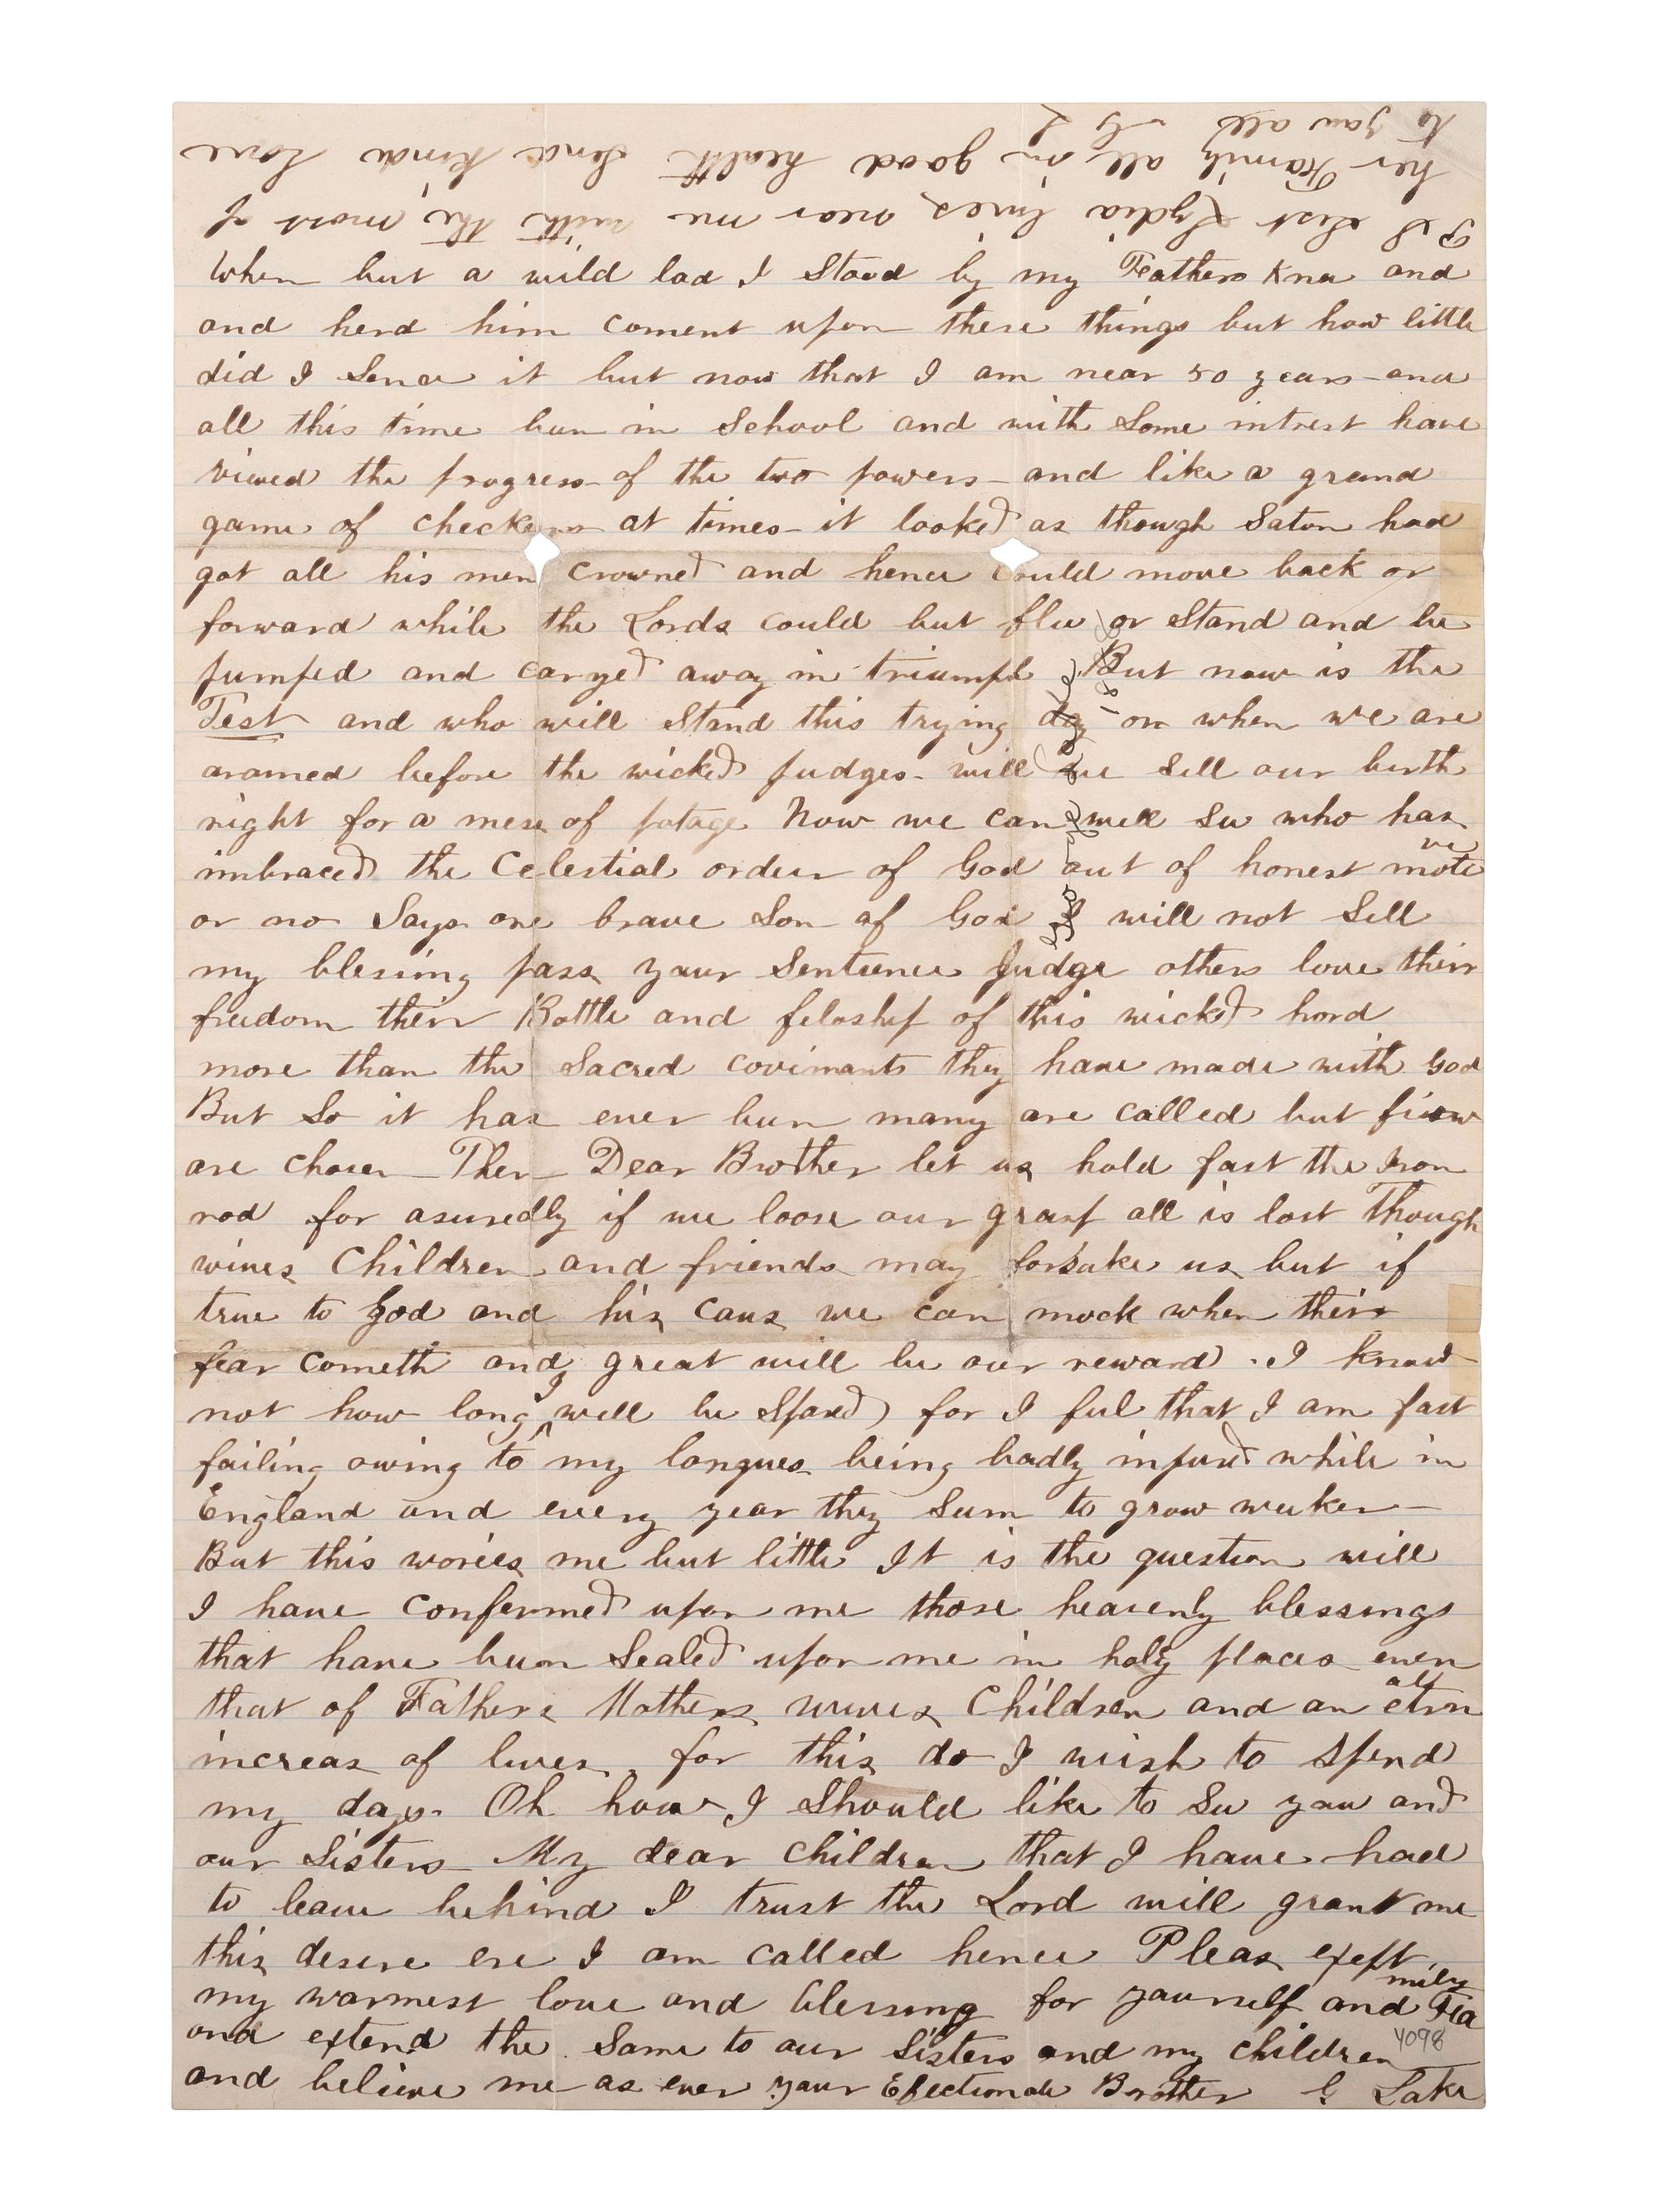 When but a wild lad I Stood by my Fathers Knee and
and herd him coment upon these things but how little
did I Sence it but now that I am near 50 years and
all this time bun in School and with Some intrest have
viewed the progress of the two powers and like a grand
game of checkers at times it looked as though Saton had
got all his men crowned and hence could move back or
forward while the Lords could but flee or Stand and be
jumped and carryed away in triumph But now is the
Test and who will Stand this trying day or when we are
aramed before the wicked judges will we Sell our birth
right for a mess of potage Now we can well See who has
imbraced the Celestial order of God out of honest motive
or no Says one brave Son of God I will not Sell
my blesing pass your Sentence Judge others love their
freedom their Bottle and feloship of this wicked hord
more than the Sacred covinants they have made with God
But So it has ever bun many are called but few
are chosen Then Dear Brother let us hold fast the Iron
rod for asuredly if we loose our grasp all is lost Though
wives Children and friends may forsake us but if
true to God and his caus we can mock when their
fear cometh and great will be our reward. I know
not how long I will be Spared for I feel that I am fast
failing owing to my longues being badly injured while in
England and every year they Seem to grow weeker
But this wories me but little It is the question will
I have confermed upon me those heavenly blessings
that have been Sealed upon me in holy places even
that of Fathers Mothers wives Children and an etrnal
increas of lives for this do I wish to Spend
my days. Oh how I Should like to See you and
our Sisters My dear children that I have had
to leave behind I trust the Lord will grant me
this desire ere I am called hence Pleas exept
my warmest love and blessing for yourself and Family
and extend the Same to our Sisters and my children
4098
and believe me as ever your Efectionate Brother G Lake
P S Sist Lydia lives near me with the most of
her Family all in good health Send kind Love
to you all G L